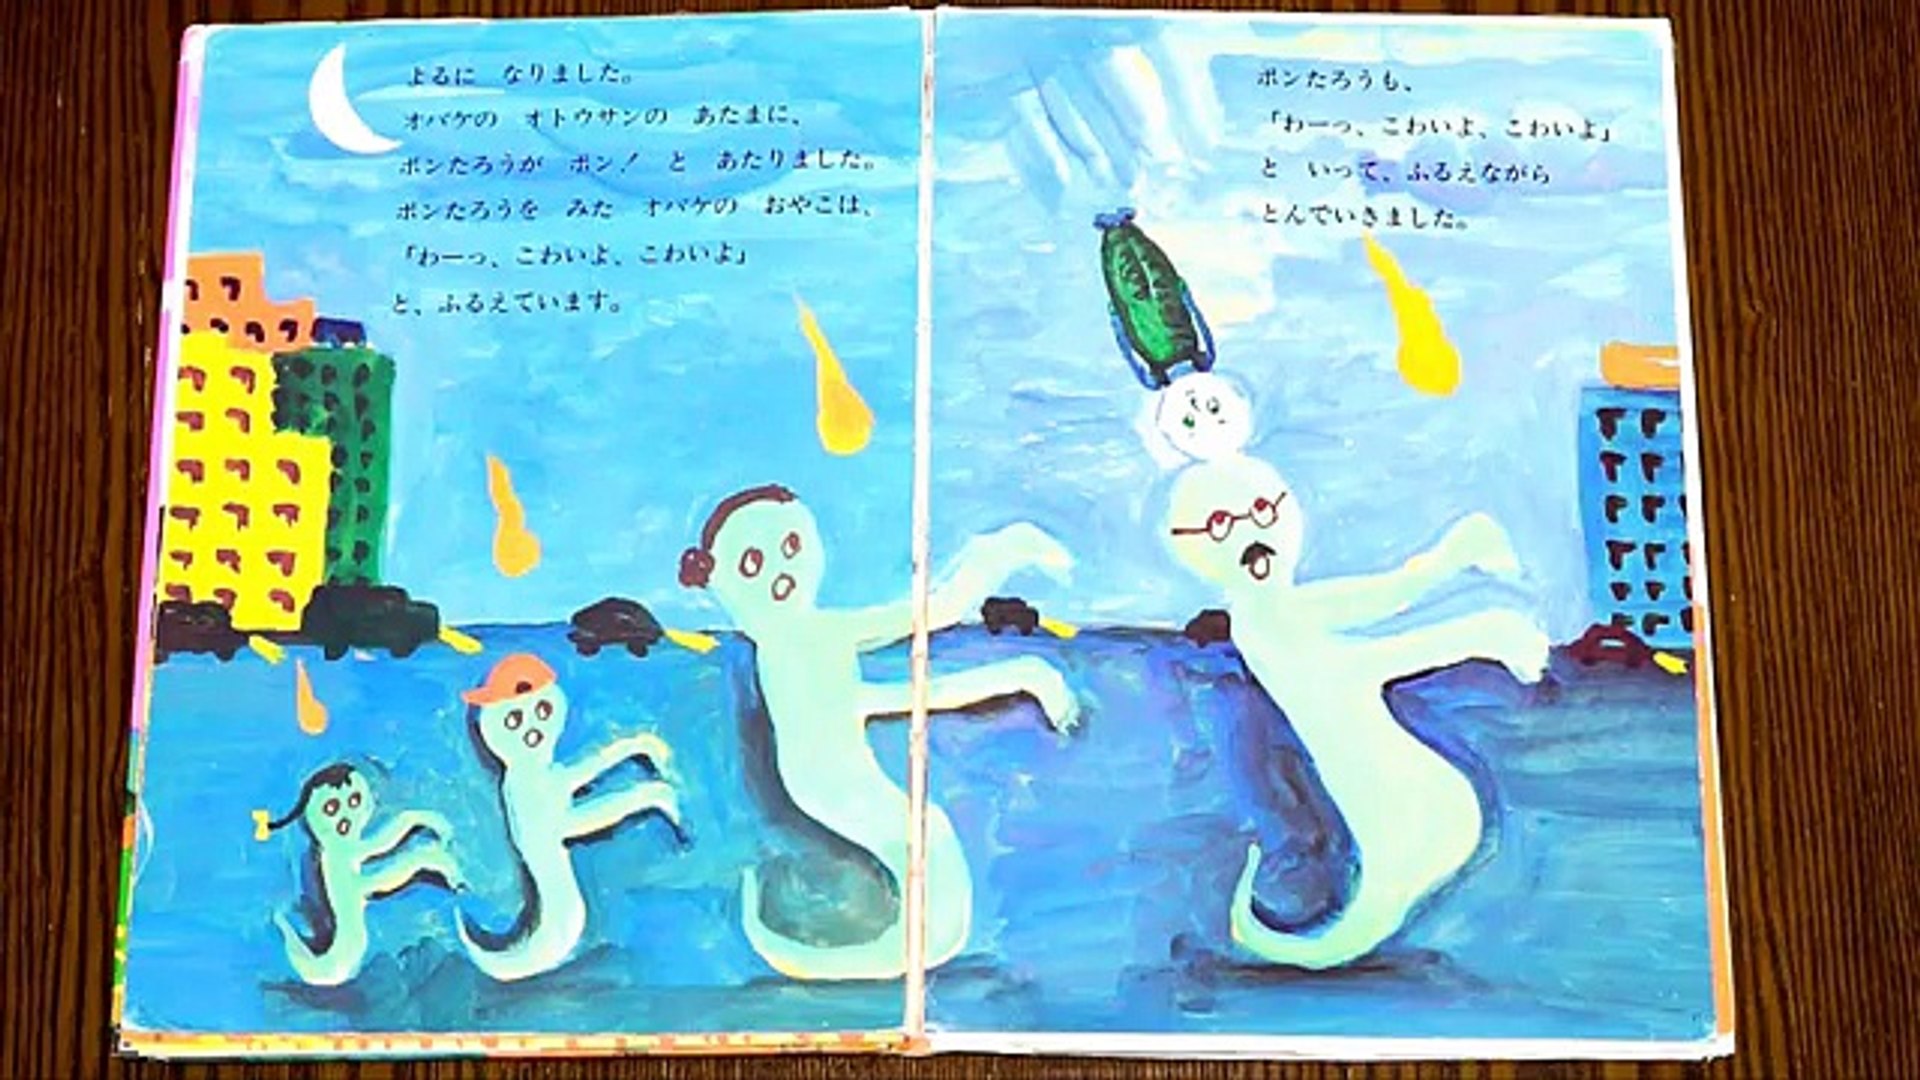 よるに なりました。
オバケの オトウサンの あたまに、
ポンたろうが ポン！ と あたりました。
ポンたろうを みた オバケの おやこは、
「わーっ、こわいよ、こわいよ」
と、ふるえています。
ポンたろうも、
「わーっ、こわいよ、こわいよ」
と いって、ふるえながら
とんでいきました。